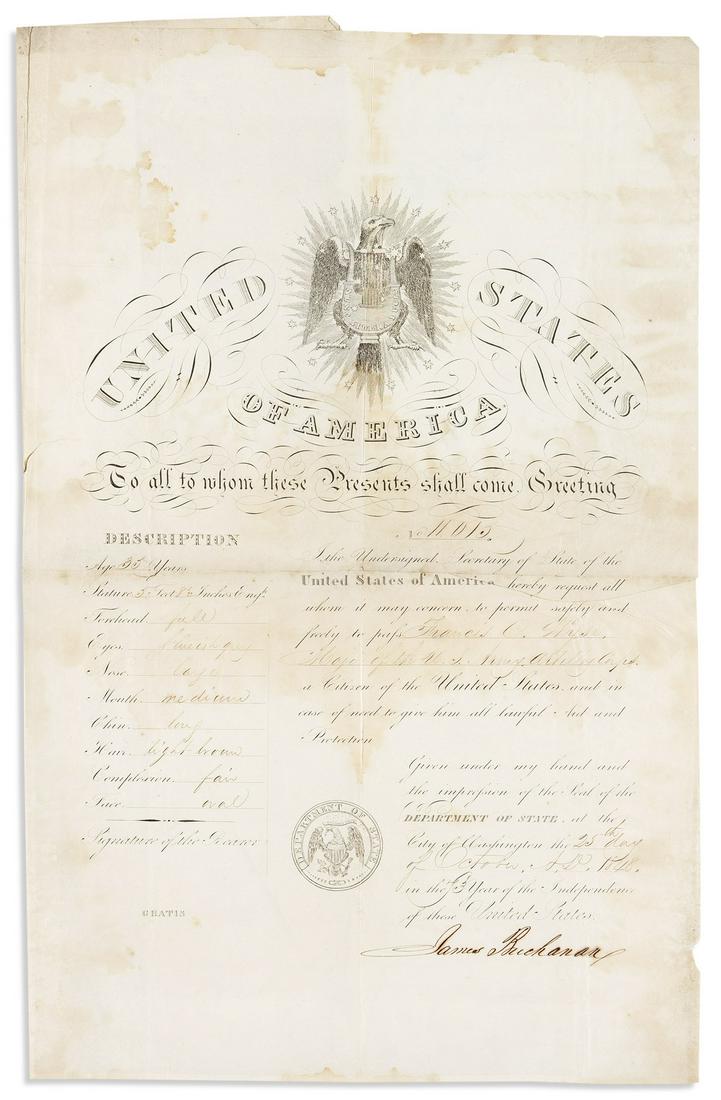 UNITED STATES
OF AMERICA
To all to whom these Presents shall come. Greeting
DESCRIPTION
Age 35 Years
Stature 5 Feet Inches Eng.
Forehead. full
Eyes.
Nose. large
Mouth. medium
Chin. long
Hair. light brown
Complexion. fair
Face. oval
Signature of the Bearer
GRATIS
No
I, the Undersigned, Secretary of State of the
United States of America hereby request all
whom it may concern, to permit safely and
freely to pass Francis O. Wyse,
of the U. S. Army
a Citizen of the United States, and in
case of need to give him all lawful Aid and
Protection
Given under my hand and
the impression of the Seal of the
DEPARTMENT OF STATE, at the
City of Washington the 25th day
of October, A.D. 1848,
in the 73 Year of the Independence
of these United States.
James Buchanan
DEPARTMENT OF STATE